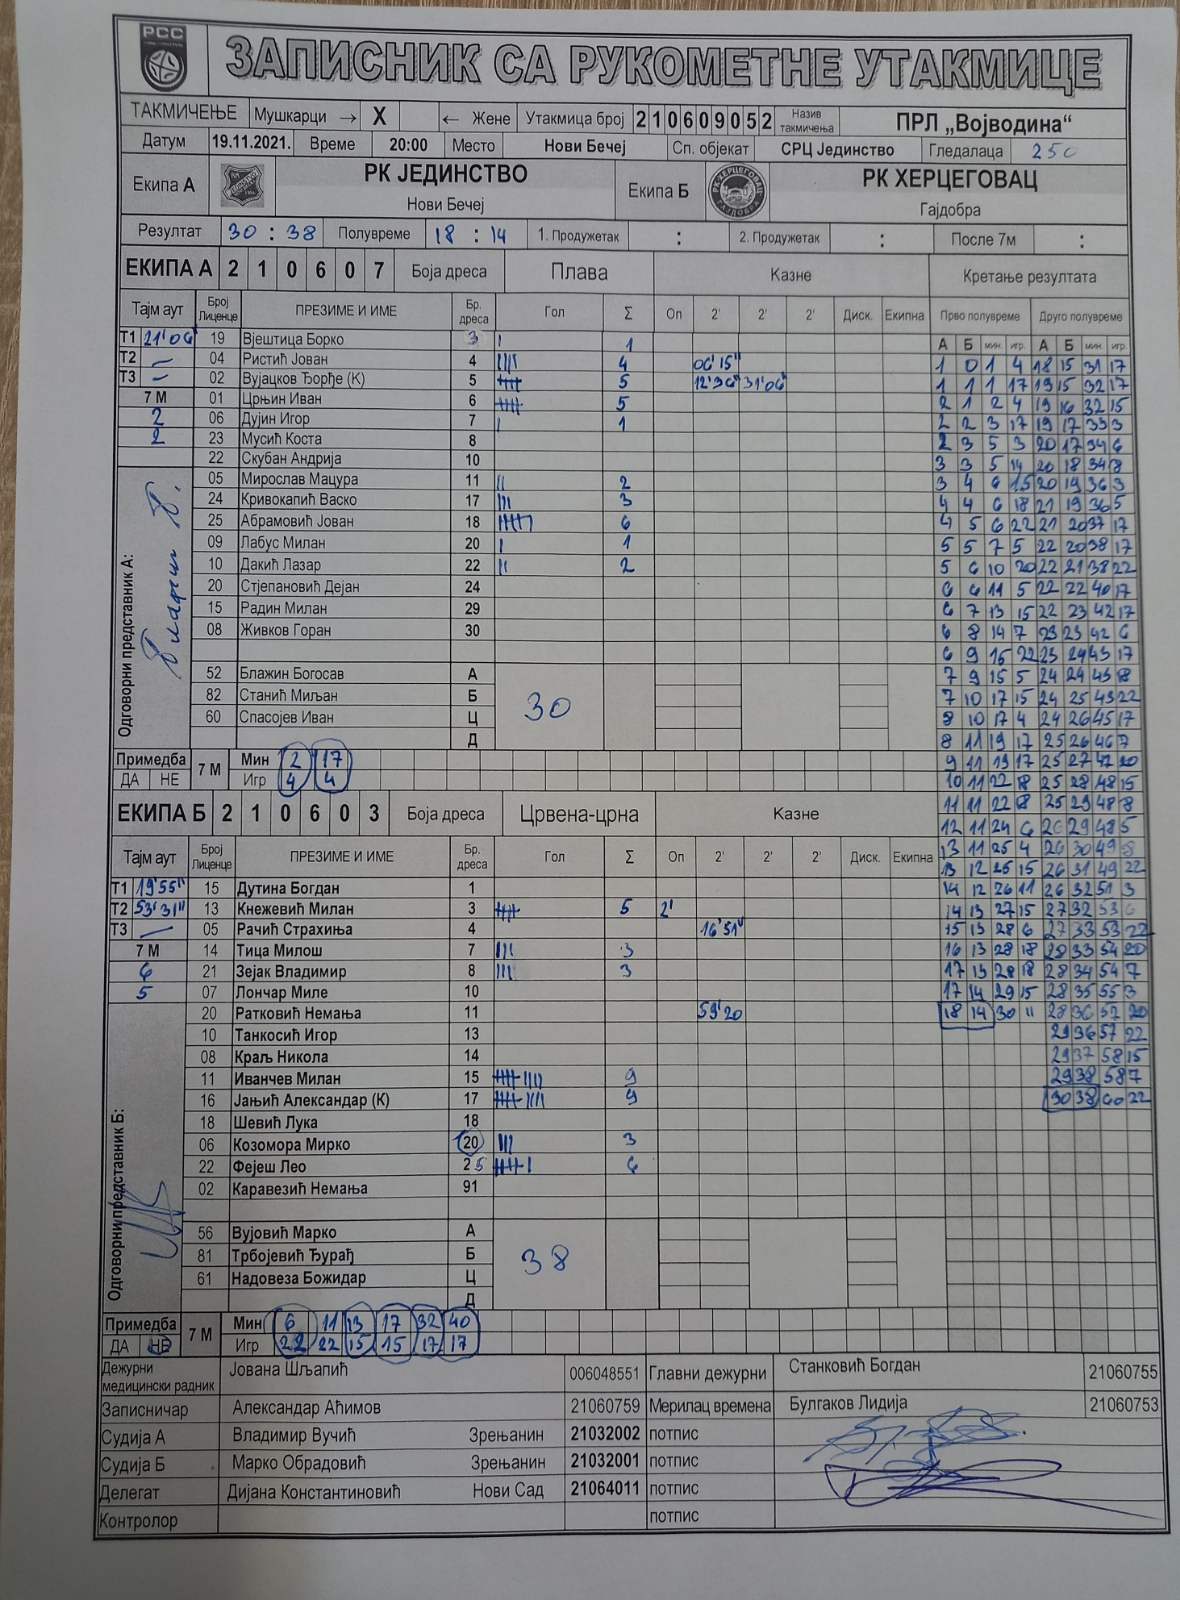 РСС
ЗАПИСНИК СА РУКОМЕТНЕ УТАКМИЦЕ
ТАКМИЧЕЊЕ Мушкарци → X ← Жене Утакмица број 210609052 Назив такмичења ПРЛ „Војводина“
Датум 19.11.2021. Време 20:00 Место Нови Бечеј Сп. објекат СРЦ Јединство Гледалаца 250
Екипа А РК ЈЕДИНСТВО Нови Бечеј Екипа Б РК ХЕРЦЕГОВАЦ Гајдобра
Резултат 30 : 38 Полувреме 18 : 14 1. Продужетак : 2. Продужетак : После 7м :
ЕКИПА А 2 1 0 6 0 7 Боја дреса Плава Казне Кретање резултата
Тајм аут Број Лиценце ПРЕЗИМЕ И ИМЕ Бр. дреса Гол Σ Оп 2' 2' 2' Диск. Екипна Прво полувреме Друго полувреме
А Б мин. игр. А Б мин. игр.
Т1 21'06 19 Вјештица Борко 3 I 1
Т2 – 04 Ристић Јован 4 IIII 4 06'15" 1 0 1 4 18 15 31 17
Т3 – 02 Вујацков Ђорђе (К) 5 5 12'36" 31'06" 1 1 1 17 19 15 32 17
7 М 01 Црњин Иван 6 5 2 1 2 4 19 16 32 15
2 06 Дујин Игор 7 I 1 2 2 3 17 19 17 33 3
2 23 Мусић Коста 8 2 3 5 3 20 17 34 6
22 Скубан Андрија 10 3 3 5 14 20 18 34 8
05 Мирослав Мацура 11 II 2 3 4 6 15 20 19 36 3
24 Кривокапић Васко 17 III 3 4 4 6 18 21 19 36 5
25 Абрамовић Јован 18 6 4 5 6 22 21 20 37 17
09 Лабус Милан 20 I 1 5 5 7 5 22 20 38 17
10 Дакић Лазар 22 II 2 5 6 10 20 22 21 38 22
20 Стјепановић Дејан 24 6 6 11 5 22 22 40 17
15 Радин Милан 29 6 7 13 15 22 23 42 17
08 Живков Горан 30 6 8 14 7 23 23 42 6
6 9 15 22 23 24 43 17
Одговорни представник А:
52 Блажин Богосав А 30 7 9 15 5 24 24 43 8
82 Станић Миљан Б 7 10 17 15 24 25 43 22
60 Спасојев Иван Ц 8 10 17 4 24 26 45 17
Д 8 11 19 17 25 26 46 7
Примедба ДА НЕ 7 М Мин 2 17 9 11 19 17 25 27 47 20
Игр 4 4 10 11 22 8 25 28 48 15
ЕКИПА Б 2 1 0 6 0 3 Боја дреса Црвена-црна Казне 11 11 22 8 25 29 48 8
12 11 24 6 26 29 48 5
Тајм аут Број Лиценце ПРЕЗИМЕ И ИМЕ Бр. дреса Гол Σ Оп 2' 2' 2' Диск. Екипна 13 11 25 4 26 30 49 8
13 12 25 15 26 31 49 22
Т1 19'55" 15 Дутина Богдан 1 14 12 26 11 26 32 51 3
Т2 53'31" 13 Кнежевић Милан 3 5 2' 14 13 27 15 27 32 53 6
Т3 – 05 Рачић Страхиња 4 16'51" 15 13 28 6 27 33 53 22
7 М 14 Тица Милош 7 III 3 16 13 28 18 28 33 54 20
6 21 Зејак Владимир 8 III 3 17 13 28 18 28 34 54 7
5 07 Лончар Миле 10 17 14 29 15 28 35 55 3
20 Ратковић Немања 11 59'20 18 14 30 11 28 36 57 20
10 Танкосић Игор 13 29 36 57 22
08 Краљ Никола 14 29 37 58 15
11 Иванчев Милан 15 9 29 38 58 7
16 Јањић Александар (К) 17 9 30 38 60 22
18 Шевић Лука 18
06 Козомора Мирко 20 III 3
22 Фејеш Лео 25 6
02 Каравезић Немања 91
Одговорни представник Б:
56 Вујовић Марко А 38
81 Трбојевић Ђурађ Б
61 Надовеза Божидар Ц
Д
Примедба ДА НЕ 7 М Мин 6 11 13 17 32 40
Игр 22 22 15 15 17 17
Дежурни медицински радник Јована Шљапић 006048551 Главни дежурни Станковић Богдан 21060755
Записничар Александар Аћимов 21060759 Мерилац времена Булгаков Лидија 21060753
Судија А Владимир Вучић Зрењанин 21032002 потпис
Судија Б Марко Обрадовић Зрењанин 21032001 потпис
Делегат Дијана Константиновић Нови Сад 21064011 потпис
Контролор потпис